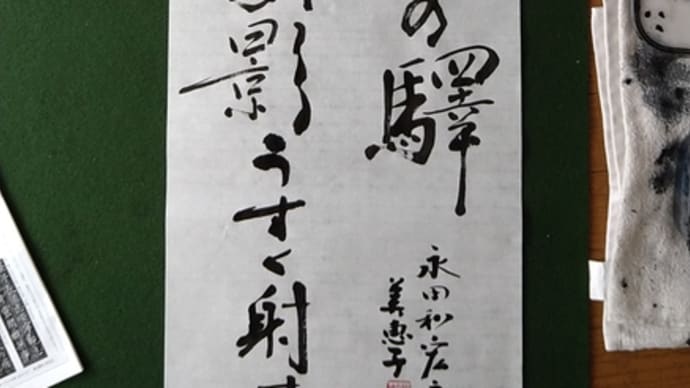 の驛
永田和宏
美惠子
影うすく射